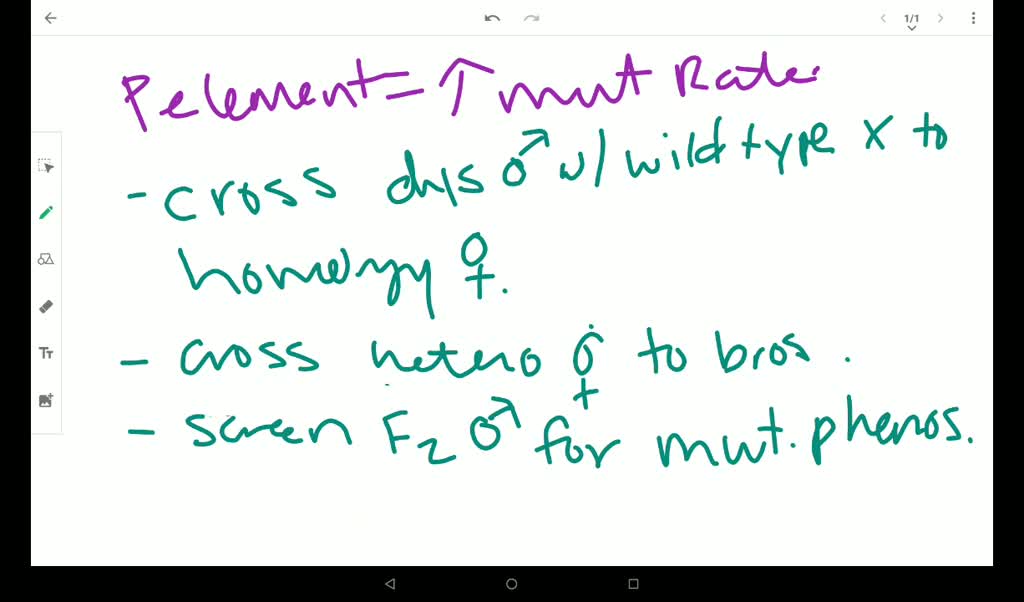 1/1
P element = ↑ mut Rate.
- cross dys ♂ w/ wild type X to
homozygy ♀.
- cross hetero ♀ to bros.
- screen F2 ♂ for mut. phenos.
Tт